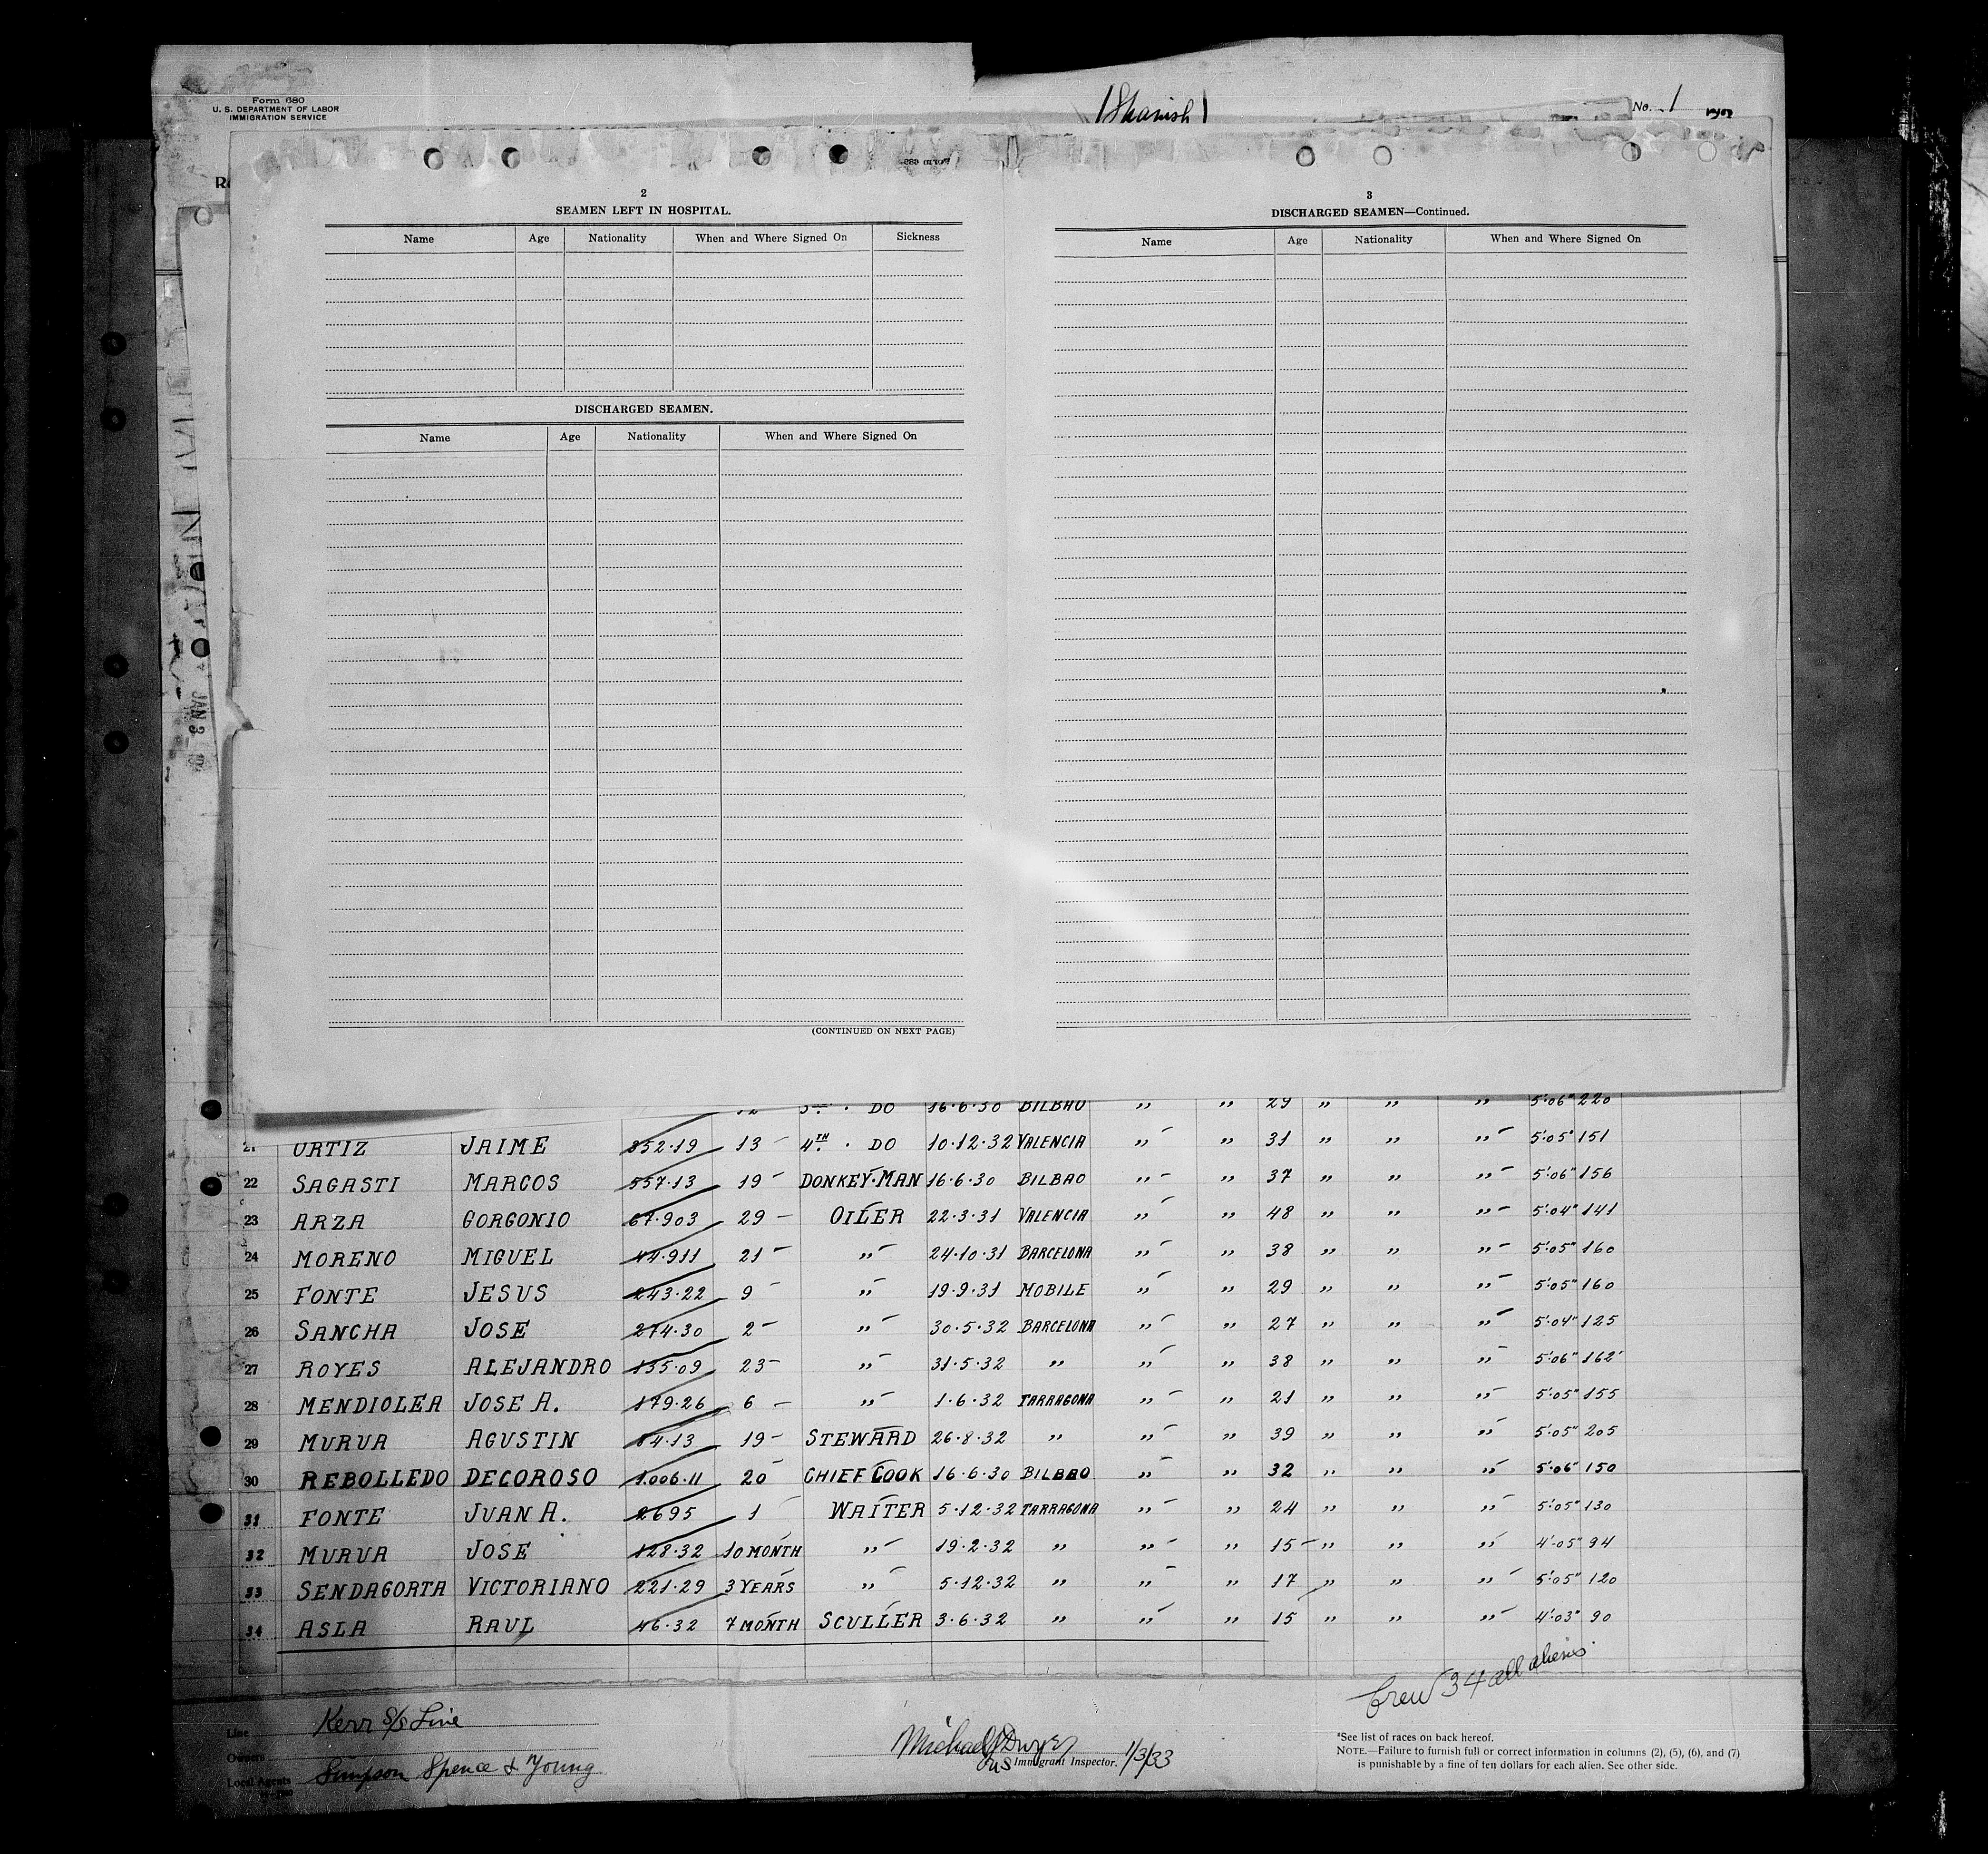 Form 680
U. S. DEPARTMENT OF LABOR
IMMIGRATION SERVICE
(Spanish)
No. 1
2
SEAMEN LEFT IN HOSPITAL.
Name Age Nationality When and Where Signed On Sickness
DISCHARGED SEAMEN.
Name Age Nationality When and Where Signed On
(CONTINUED ON NEXT PAGE)
3
DISCHARGED SEAMEN—Continued.
Name Age Nationality When and Where Signed On
JAN 3
DO 16·6·30 BILBAO ,, ,, 29 ,, ,, ,, 5'06" 220
21 ORTIZ JAIME 352·19 13 4TH · DO 10·12·32 VALENCIA ,, ,, 31 ,, ,, ,, 5'05" 151
22 SAGASTI MARCOS 557·13 19 DONKEY·MAN 16·6·30 BILBAO ,, ,, 37 ,, ,, ,, 5'06" 156
23 ARZA GORGONIO 67·903 29 OILER 22·3·31 VALENCIA ,, ,, 48 ,, ,, ,, 5'04" 141
24 MORENO MIGUEL 44·911 21 ,, 24·10·31 BARCELONA ,, ,, 38 ,, ,, ,, 5'05" 160
25 FONTE JESUS 243·22 9 ,, 19·9·31 MOBILE ,, ,, 29 ,, ,, ,, 5'05" 160
26 SANCHA JOSE 274·30 2 ,, 30·5·32 BARCELONA ,, ,, 27 ,, ,, ,, 5'04" 125
27 ROYES ALEJANDRO 155·09 23 ,, 31·5·32 ,, ,, ,, 38 ,, ,, ,, 5'06" 162
28 MENDIOLEA JOSE A. 179·26 6 ,, 1·6·32 TARRAGONA ,, ,, 21 ,, ,, ,, 5'05" 155
29 MURUA AGUSTIN 84·13 19 STEWARD 26·8·32 ,, ,, ,, 39 ,, ,, ,, 5'05" 205
30 REBOLLEDO DECOROSO 1.006·11 20 CHIEF COOK 16·6·30 BILBAO ,, ,, 32 ,, ,, ,, 5'06" 150
31 FONTE JUAN A. 2695 1 WAITER 5·12·32 TARRAGONA ,, ,, 24 ,, ,, ,, 5'05" 130
32 MURUA JOSE 128·32 10 MONTH ,, 19·2·32 ,, ,, ,, 15 ,, ,, ,, 4'05" 94
33 SENDAGORTA VICTORIANO 221·29 3 YEARS ,, 5·12·32 ,, ,, ,, 17 ,, ,, ,, 5'05" 120
34 ASLA RAUL 46·32 7 MONTH SCULLER 3·6·32 ,, ,, ,, 15 ,, ,, ,, 4'03" 90
Crew 34 all aliens
Line Kerr S/S Line
Owners
Local Agents Simpson Spence & Young
Michael J Dwyer
Immigrant Inspector. 1/3/33
*See list of races on back hereof.
NOTE.—Failure to furnish full or correct information in columns (2), (5), (6), and (7)
is punishable by a fine of ten dollars for each alien. See other side.